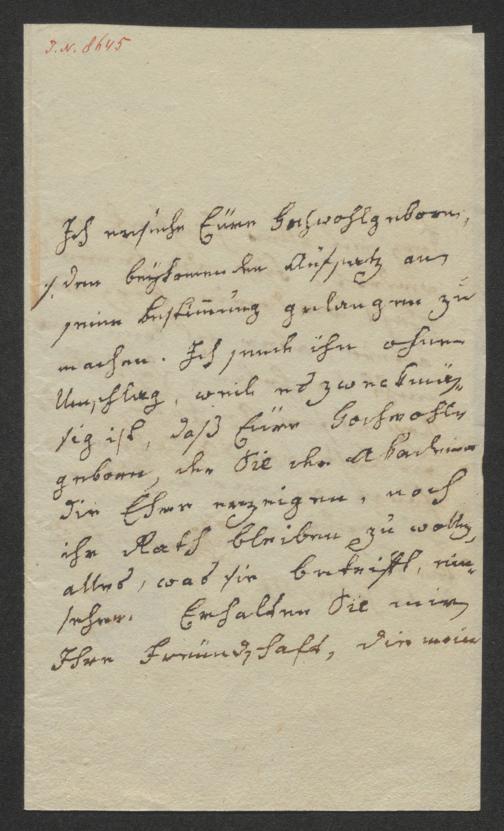 I. N. 8645
Ich ersuche Eüre Hochwohlgeboren,
den beykommenden Aufsatz an
seine Bestimmung gelangen zu
machen. Ich sende ihn ohne
Umschlag, weil es zweckmäs-
sig ist, daß Eüre Hochwohl-
geboren, der Sie der Akademie
die Ehre erzeigen, noch
ihr Rath bleiben zu wollen,
alles, was sie betrifft, ein-
sehen. Erhalten Sie mir
Ihre Freündschaft, die mein